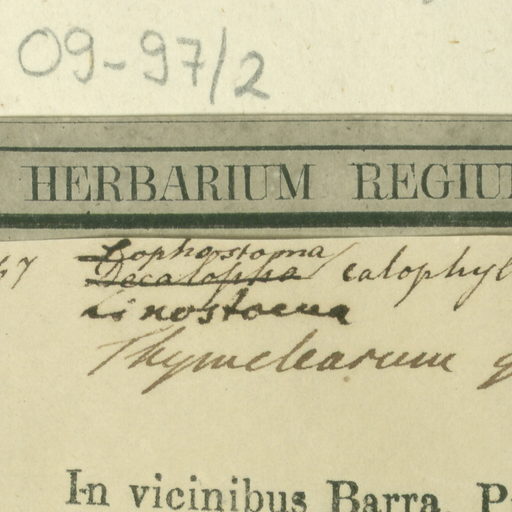 09-97/2
HERBARIUM REGIU
67 Lophostoma
Decaloppha calophyl
Linostoma
Thymelearum g
In vicinibus Barra, P